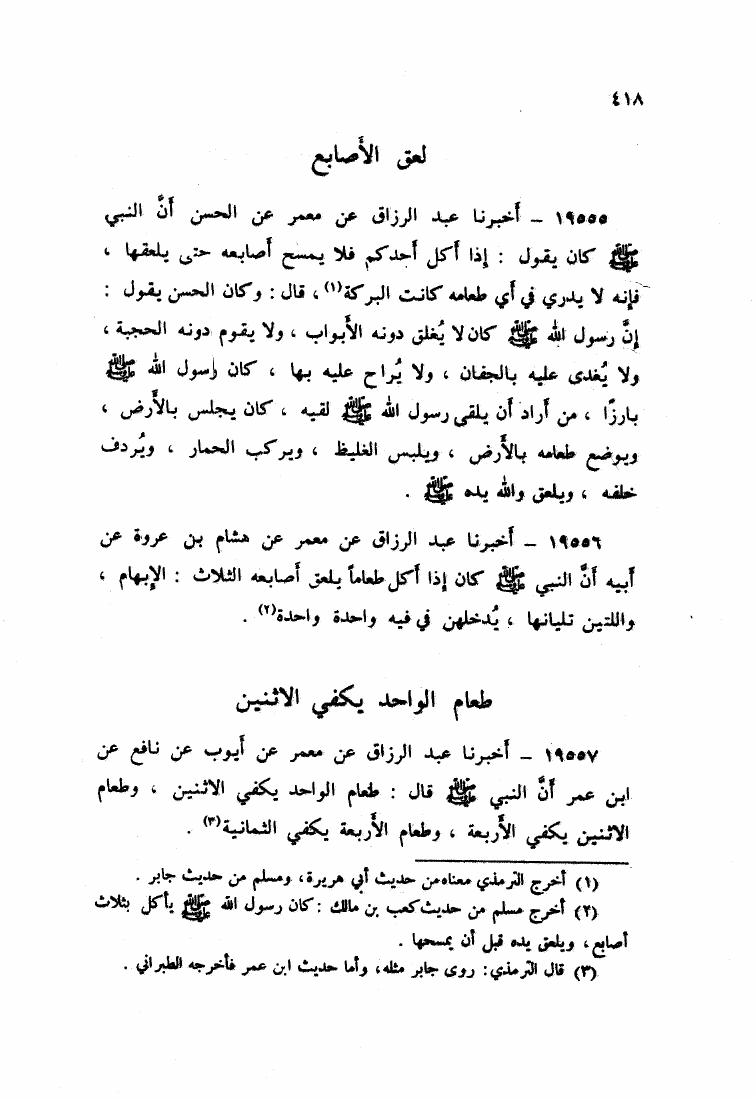 ٤١٨
لعق الأصابع
١٩٥٥٥ – أخبرنا عبد الرزاق عن معمر عن الحسن أنَّ النبي
ﷺ كان يقول : إذا أكل أحدكم فلا يمسح أصابعه حتى يلعقها ،
فإنه لا يدري في أي طعامه كانت البركة(١) ، قال : وكان الحسن يقول :
إنَّ رسول الله ﷺ كان لا يُغلق دونه الأبواب ، ولا يقوم دونه الحجبة ،
ولا يُغدى عليه بالجفان ، ولا يُراح عليه بها ، كان رسول الله ﷺ
بارزًا ، من أراد أن يلقى رسول الله ﷺ لقيه ، كان يجلس بالأرض ،
ويوضع طعامه بالأرض ، ويلبس الغليظ ، ويركب الحمار ، ويُردف
خلفه ، ويلعق والله يده ﷺ .
١٩٥٥٦ – أخبرنا عبد الرزاق عن معمر عن هشام بن عروة عن
أبيه أنَّ النبي ﷺ كان إذا أكل طعاماً يلعق أصابعه الثلاث : الإبهام ،
واللتين تليانها ، يُدخلهن في فيه واحدة واحدة(٢) .
طعام الواحد يكفي الاثنين
١٩٥٥٧ – أخبرنا عبد الرزاق عن معمر عن أيوب عن نافع عن
ابن عمر أنَّ النبي ﷺ قال : طعام الواحد يكفي الاثنين ، وطعام
الاثنين يكفي الأربعة ، وطعام الأربعة يكفي الثمانية(٣) .
(١) أخرج الترمذي معناه من حديث أبي هريرة، ومسلم من حديث جابر .
(٢) أخرج مسلم من حديث كعب بن مالك : كان رسول الله ﷺ يأكل بثلاث
أصابع، ويلعق يده قبل أن يمسحها .
(٣) قال الترمذي: روى جابر مثله، وأما حديث ابن عمر فأخرجه الطبراني .